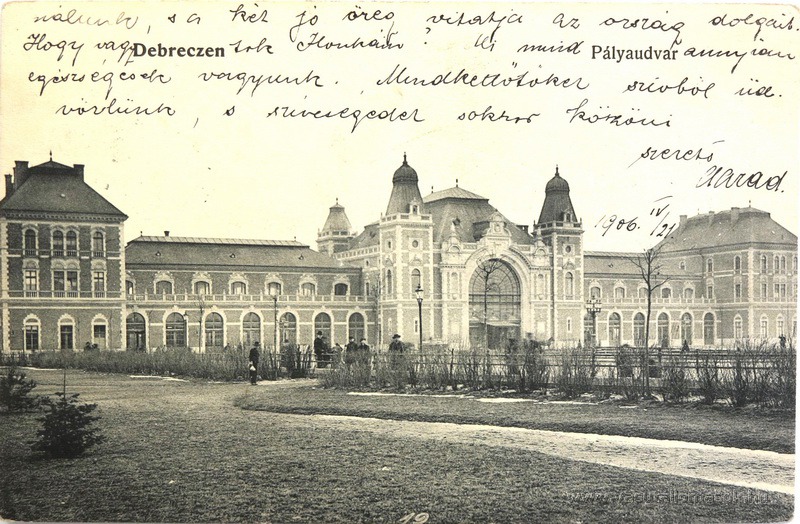 nálunk, s a két jó öreg vitatja az ország dolgait.
Hogy vagytok Honkám? Mi mind annyian
Debreczen
Pályaudvar
egészségesek vagyunk. Mindkettőtöket szívből üd-
vözlünk, s szívességedet sokszor köszöni
szerető
1906 IV/21
19
www.vasutallomasok.hu